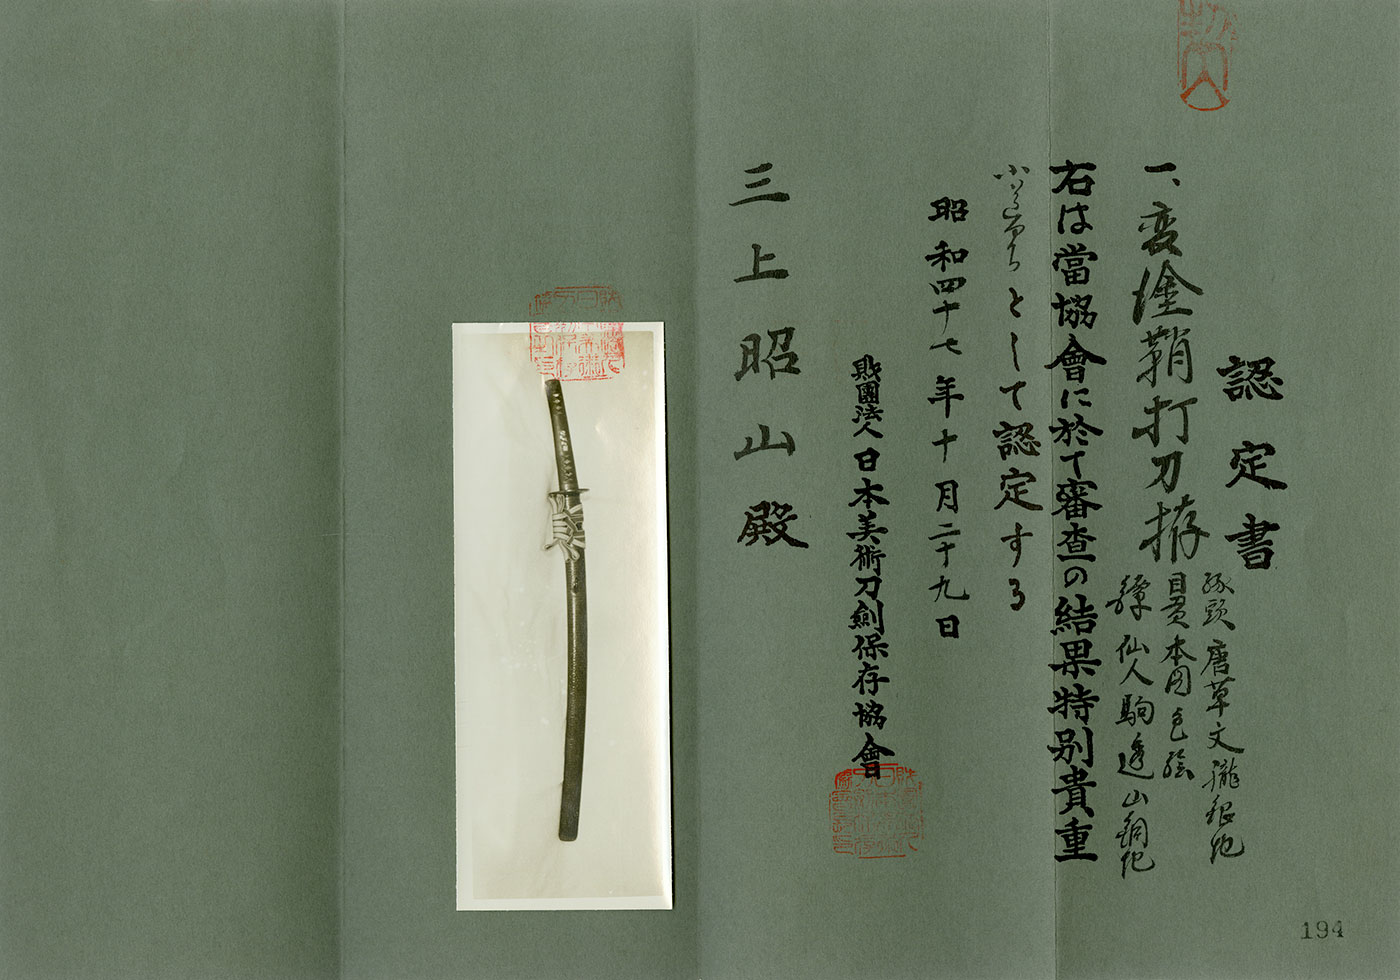 認定書
一、変塗鞘打刀拵
縁頭 唐草文 朧銀地
目貫 本図 色絵
鐔 仙人駒透 山銅地
右は當協會に於て審査の結果特別貴重
小道具として認定する
昭和四十七年十月二十九日
財團法人日本美術刀劍保存協會
三上昭山殿
194